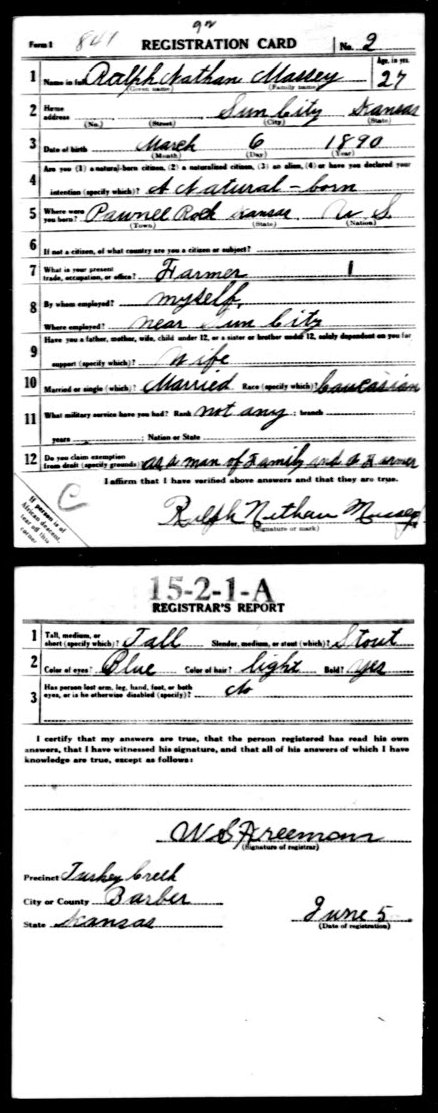 Form 1 841 92 REGISTRATION CARD No. 2
1 Name in full Ralph Nathan Massey Age, in yrs. 27
(Given name) (Family name)
2 Home address Sun City Kansas
(No.) (Street) (City) (State)
3 Date of birth March 6 1890
(Month) (Day) (Year)
4 Are you (1) a natural-born citizen, (2) a naturalized citizen, (3) an alien, (4) or have you declared your
intention (specify which)? A Natural-born
5 Where were you born? Pawnee Rock Kansas U S.
(Town) (State) (Nation)
6 If not a citizen, of what country are you a citizen or subject?
7 What is your present trade, occupation, or office? Farmer 1
8 By whom employed? myself,
Where employed? near Sun City
9 Have you a father, mother, wife, child under 12, or a sister or brother under 12, solely dependent on you for
support (specify which)? Wife
10 Married or single (which)? Married Race (specify which)? Caucasian
11 What military service have you had? Rank not any ; branch
years ; Nation or State
12 Do you claim exemption from draft (specify grounds)? as a man of Family and a Farmer
I affirm that I have verified above answers and that they are true.
C
Ralph Nathan Massey
(Signature or mark)
If person is of
African descent,
tear off this
corner.
15-2-1-A
REGISTRAR'S REPORT
1 Tall, medium, or short (specify which)? Tall Slender, medium, or stout (which)? Stout
2 Color of eyes? Blue Color of hair? light Bald? Yes
3 Has person lost arm, leg, hand, foot, or both
eyes, or is he otherwise disabled (specify)? No
I certify that my answers are true, that the person registered has read his own
answers, that I have witnessed his signature, and that all of his answers of which I have
knowledge are true, except as follows:
W S Freemom
(Signature of registrar)
Precinct Turkey Creek
City or County Barber
State Kansas June 5
(Date of registration)